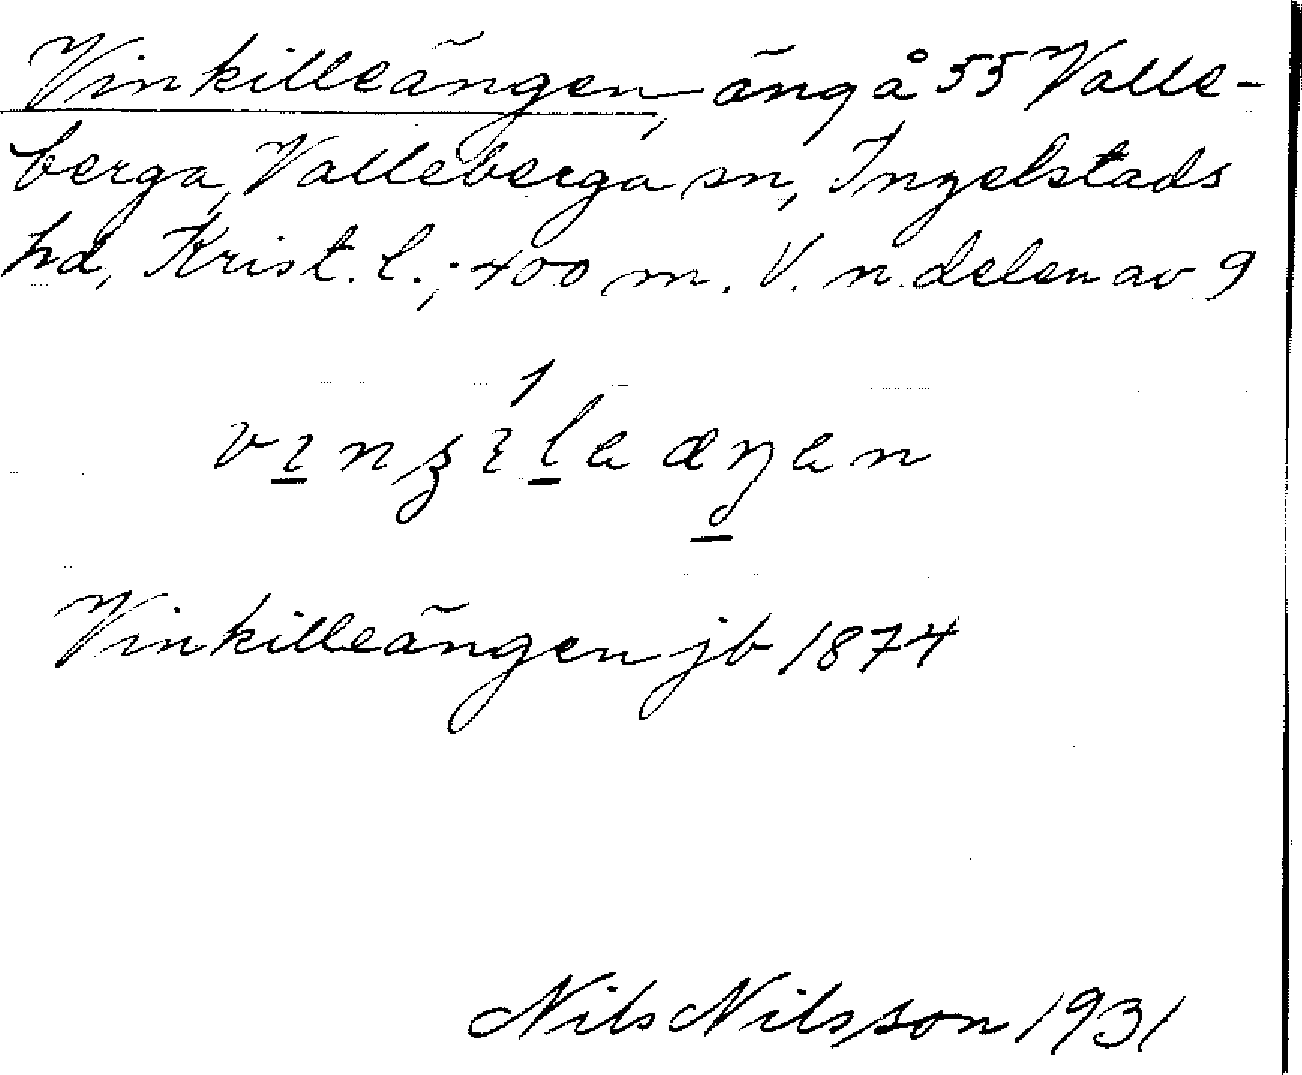 Vinkilleängen, äng å 55 Valle-
berga, Valleberga sn, Ingelstads
hd, Krist. l.; 400 m. V. n. delen av 9
Vinkilleängen jb 1874
Nils Nilsson 1931